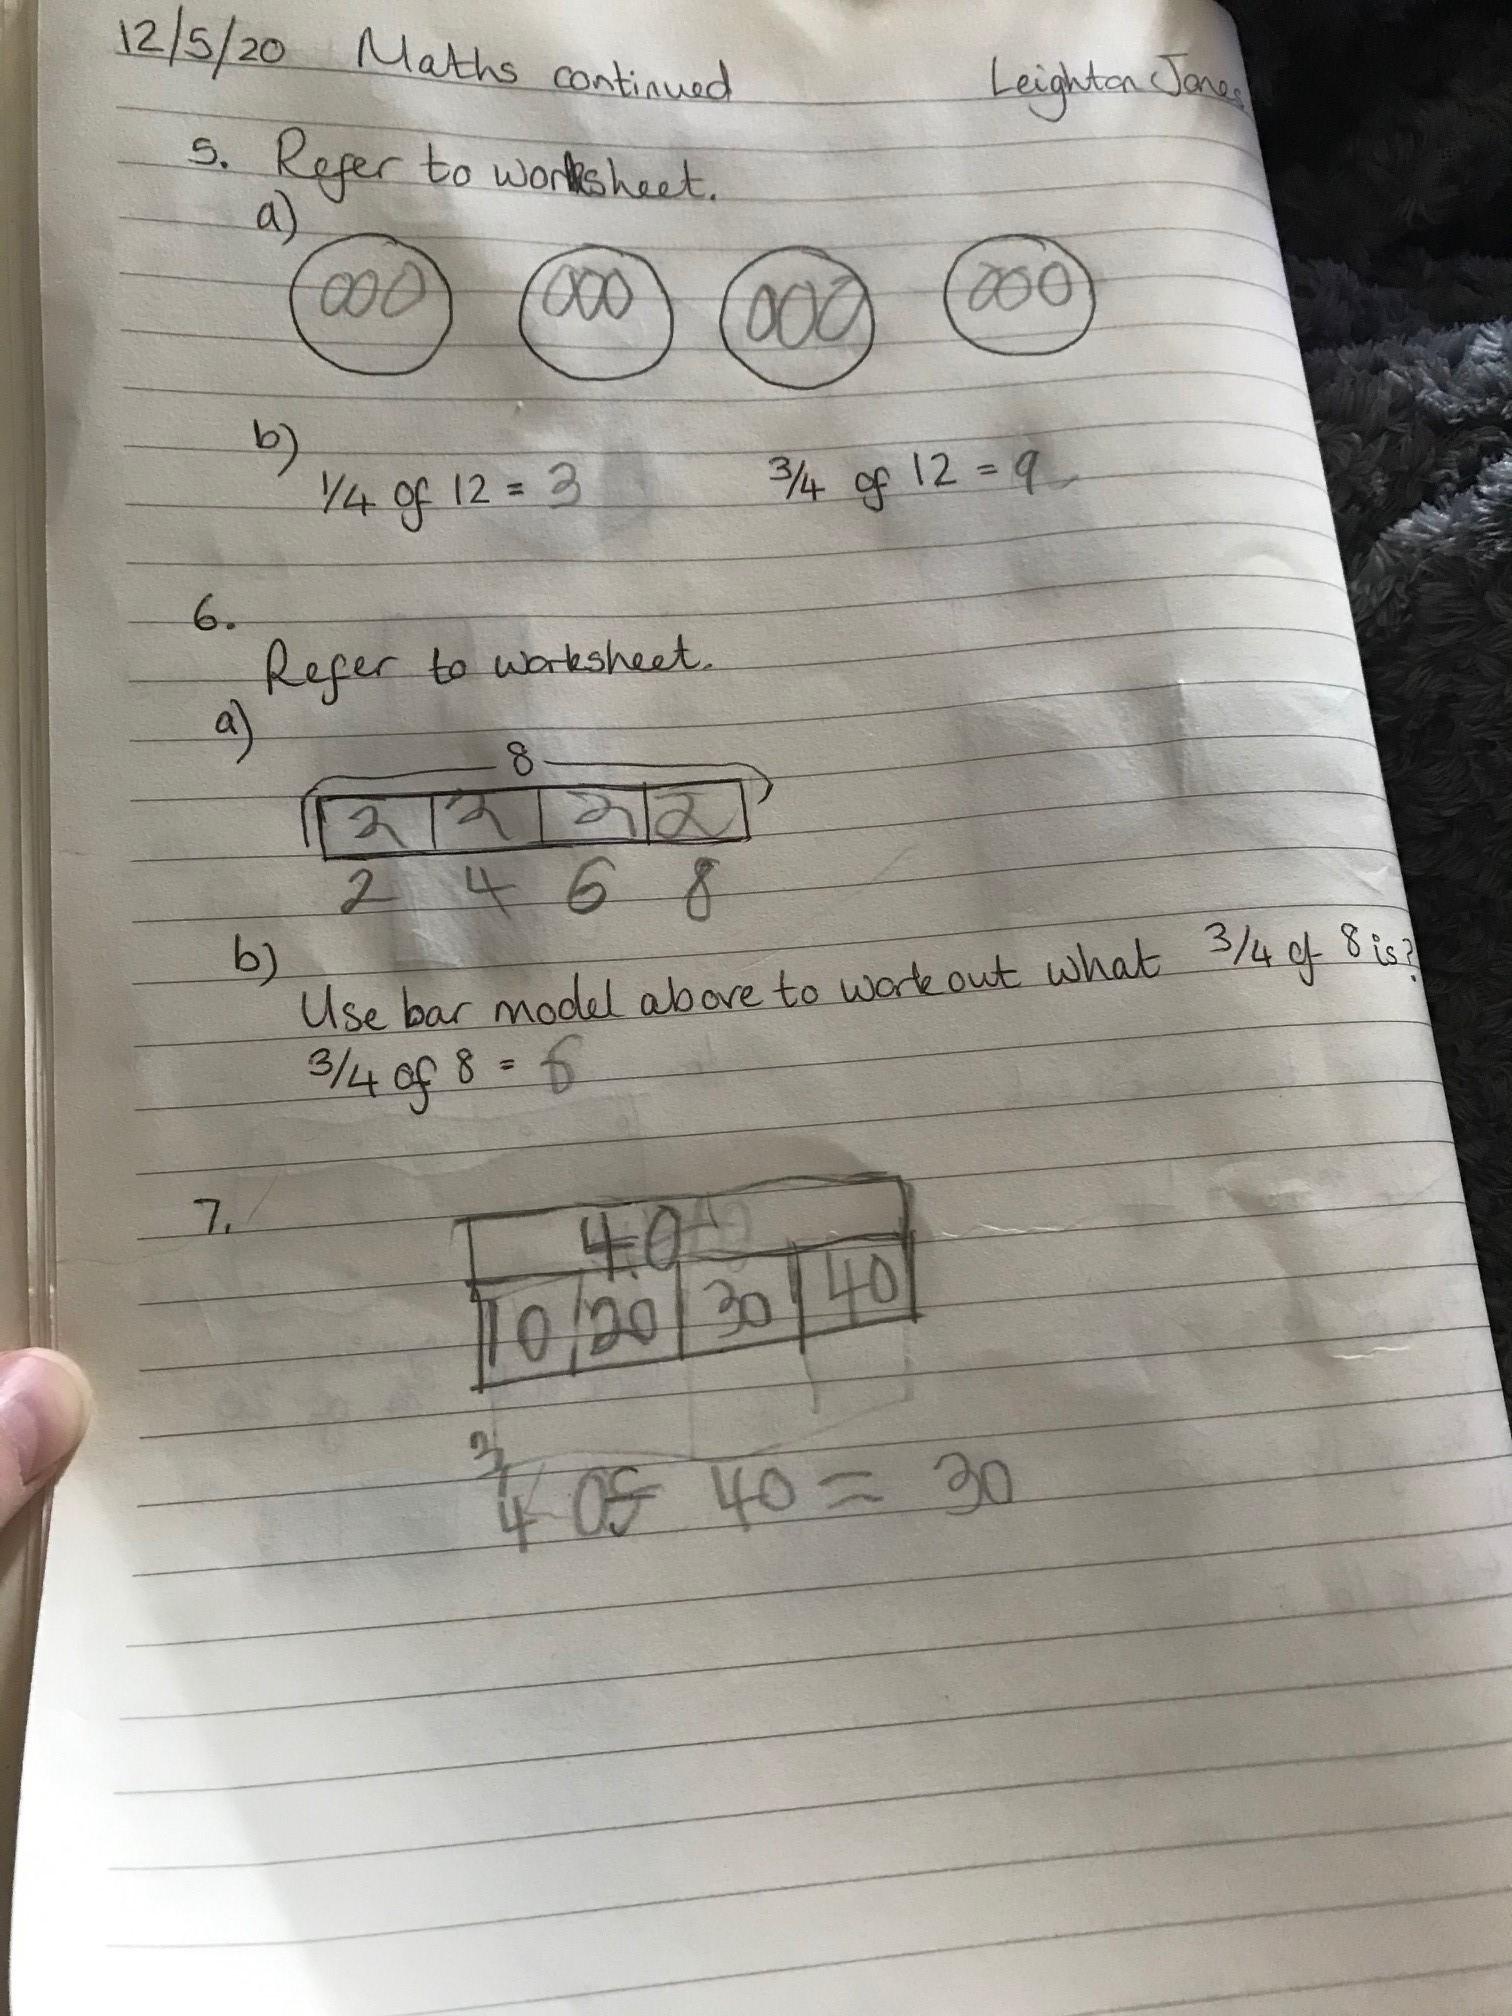 12/5/20 Maths continued Leighton Jones
5. Refer to worksheet.
a)
000 000 000 000
b)
1/4 of 12 = 3 3/4 of 12 = 9
6.
Refer to worksheet.
a)
8
2 2 2 2
2 4 6 8
b)
Use bar model above to work out what 3/4 of 8 is?
3/4 of 8 = 6
7.
40
10 20 30 40
3/4 of 40 = 30